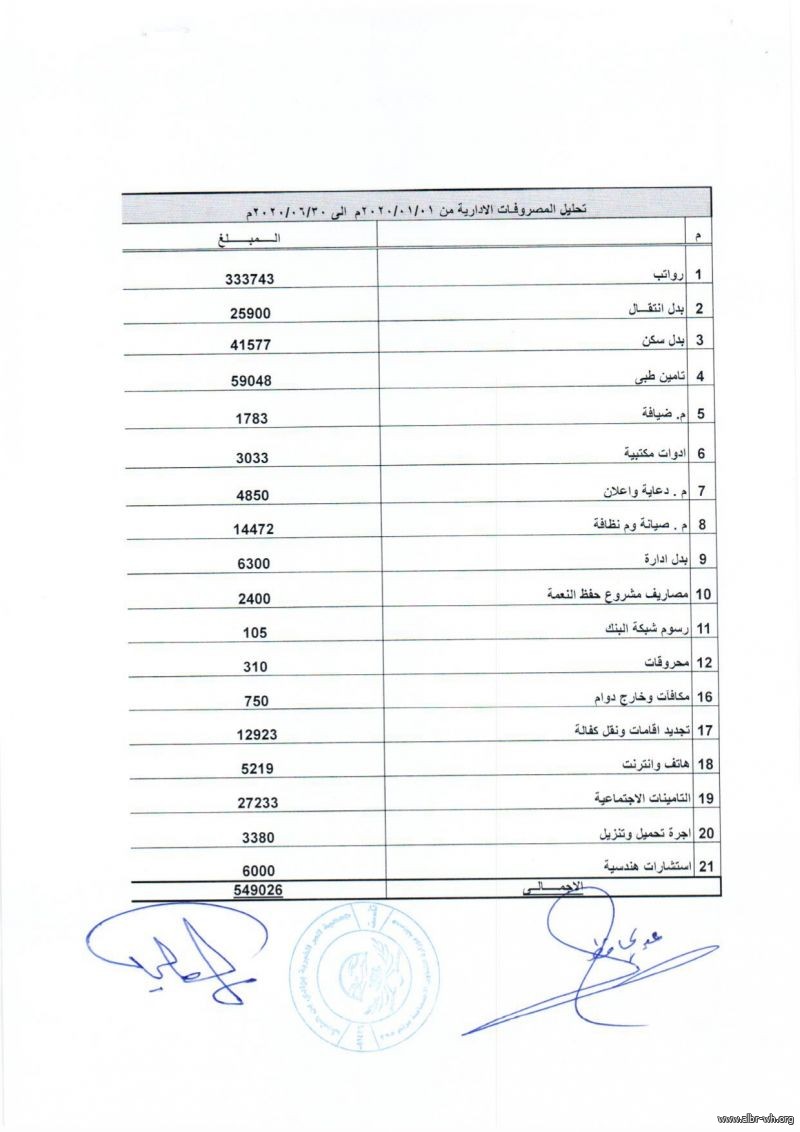 تحليل المصروفات الادارية من ٢٠٢٠/٠١/٠١م الى ٢٠٢٠/٠٦/٣٠م
م المبلغ
1 رواتب 333743
2 بدل انتقال 25900
3 بدل سكن 41577
4 تامين طبى 59048
5 م. ضيافة 1783
6 ادوات مكتبية 3033
7 م . دعاية واعلان 4850
8 م . صيانة وم نظافة 14472
9 بدل ادارة 6300
10 مصاريف مشروع حفظ النعمة 2400
11 رسوم شبكة البنك 105
12 محروقات 310
16 مكافآت وخارج دوام 750
17 تجديد اقامات ونقل كفالة 12923
18 هاتف وانترنت 5219
19 التامينات الاجتماعية 27233
20 اجرة تحميل وتنزيل 3380
21 استشارات هندسية 6000
الاجمالى 549026
www.albr-wh.org